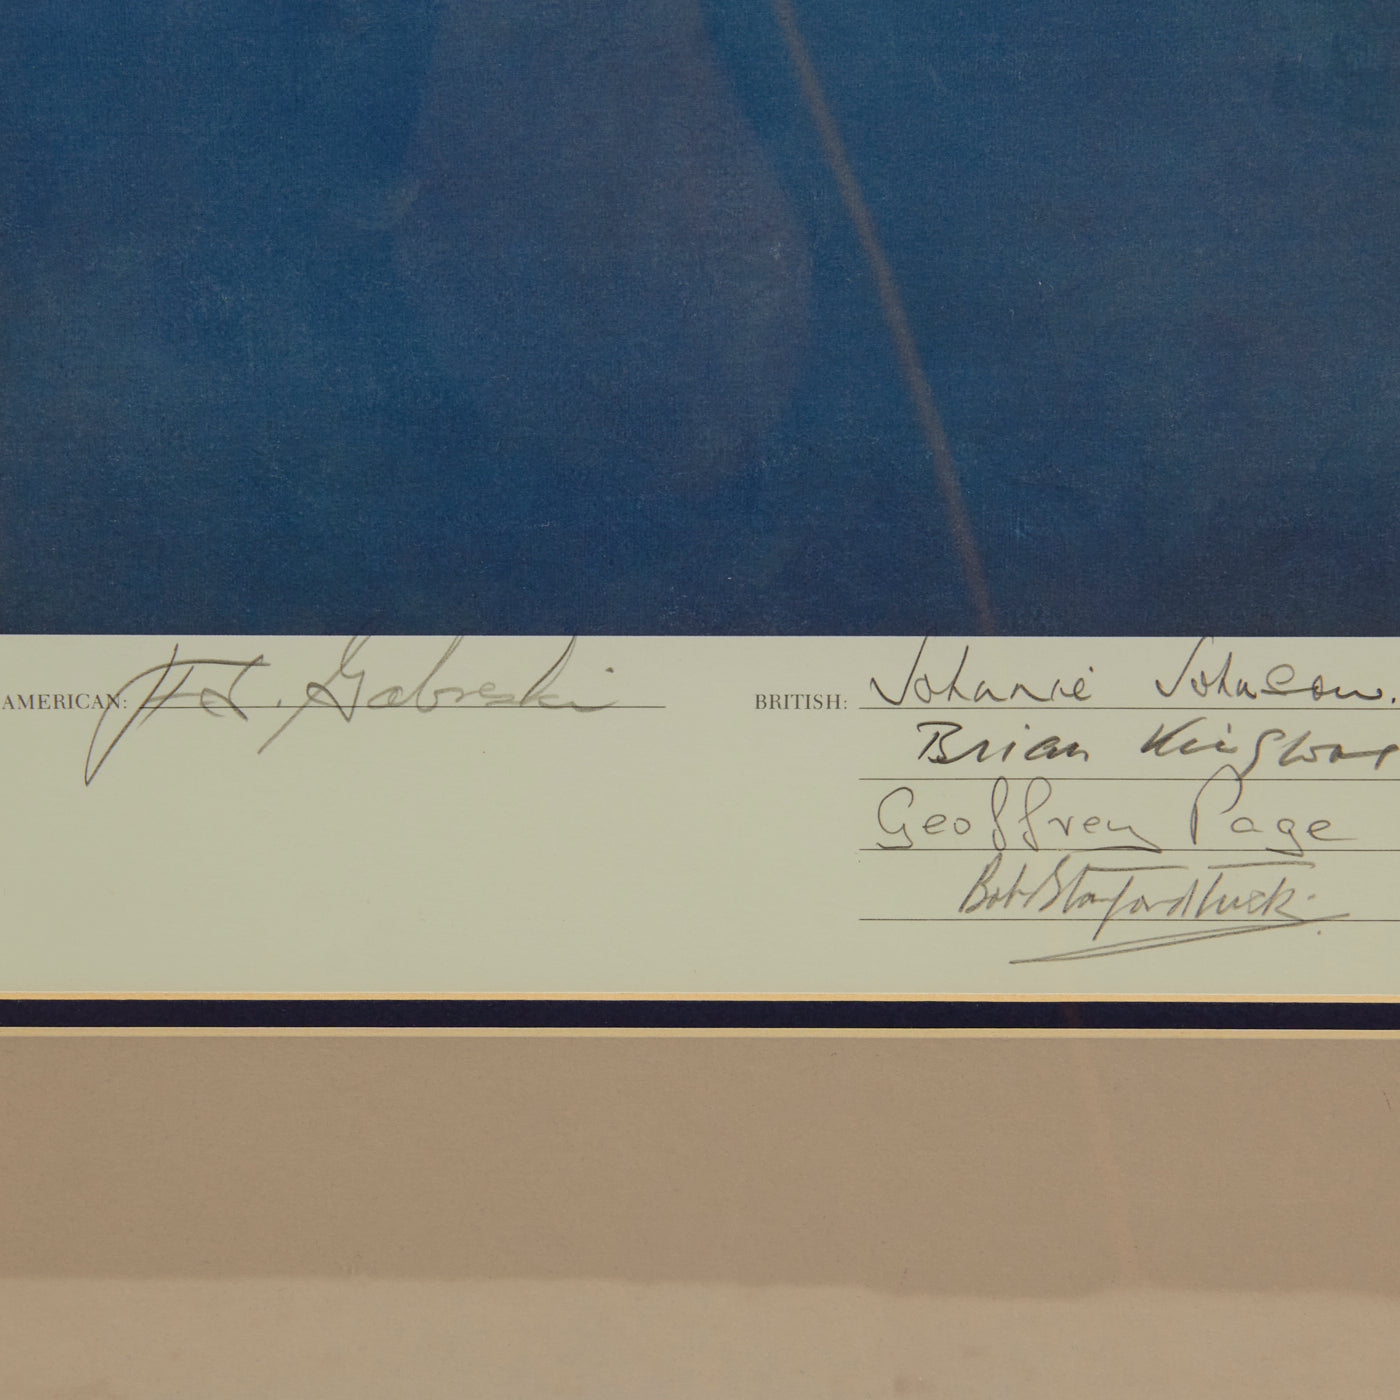 AMERICAN: F.S. Gabreski
BRITISH: Johnnie Johnson.
Brian Kingcome
Geoffrey Page
Bob Stanford Tuck.